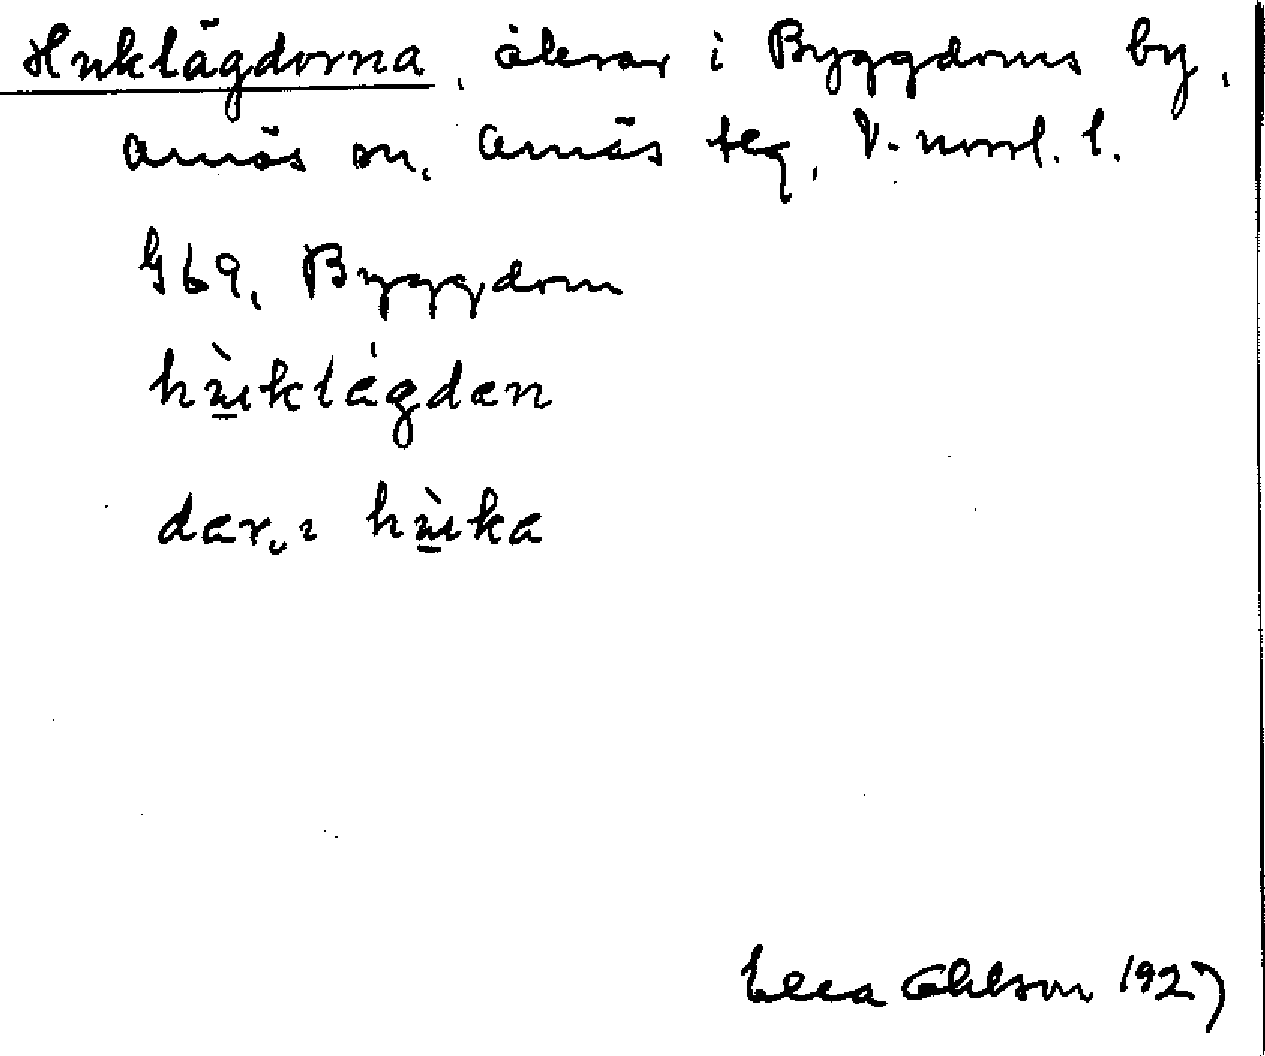 Huklägdorna, åkrar i Byggdoms by,
Arnäs sn, Arnäs tg, V.-norrl. l.
G69, Byggdom
hù̲klǽgdæn
dær., hù̲ka
Ohlson 1927